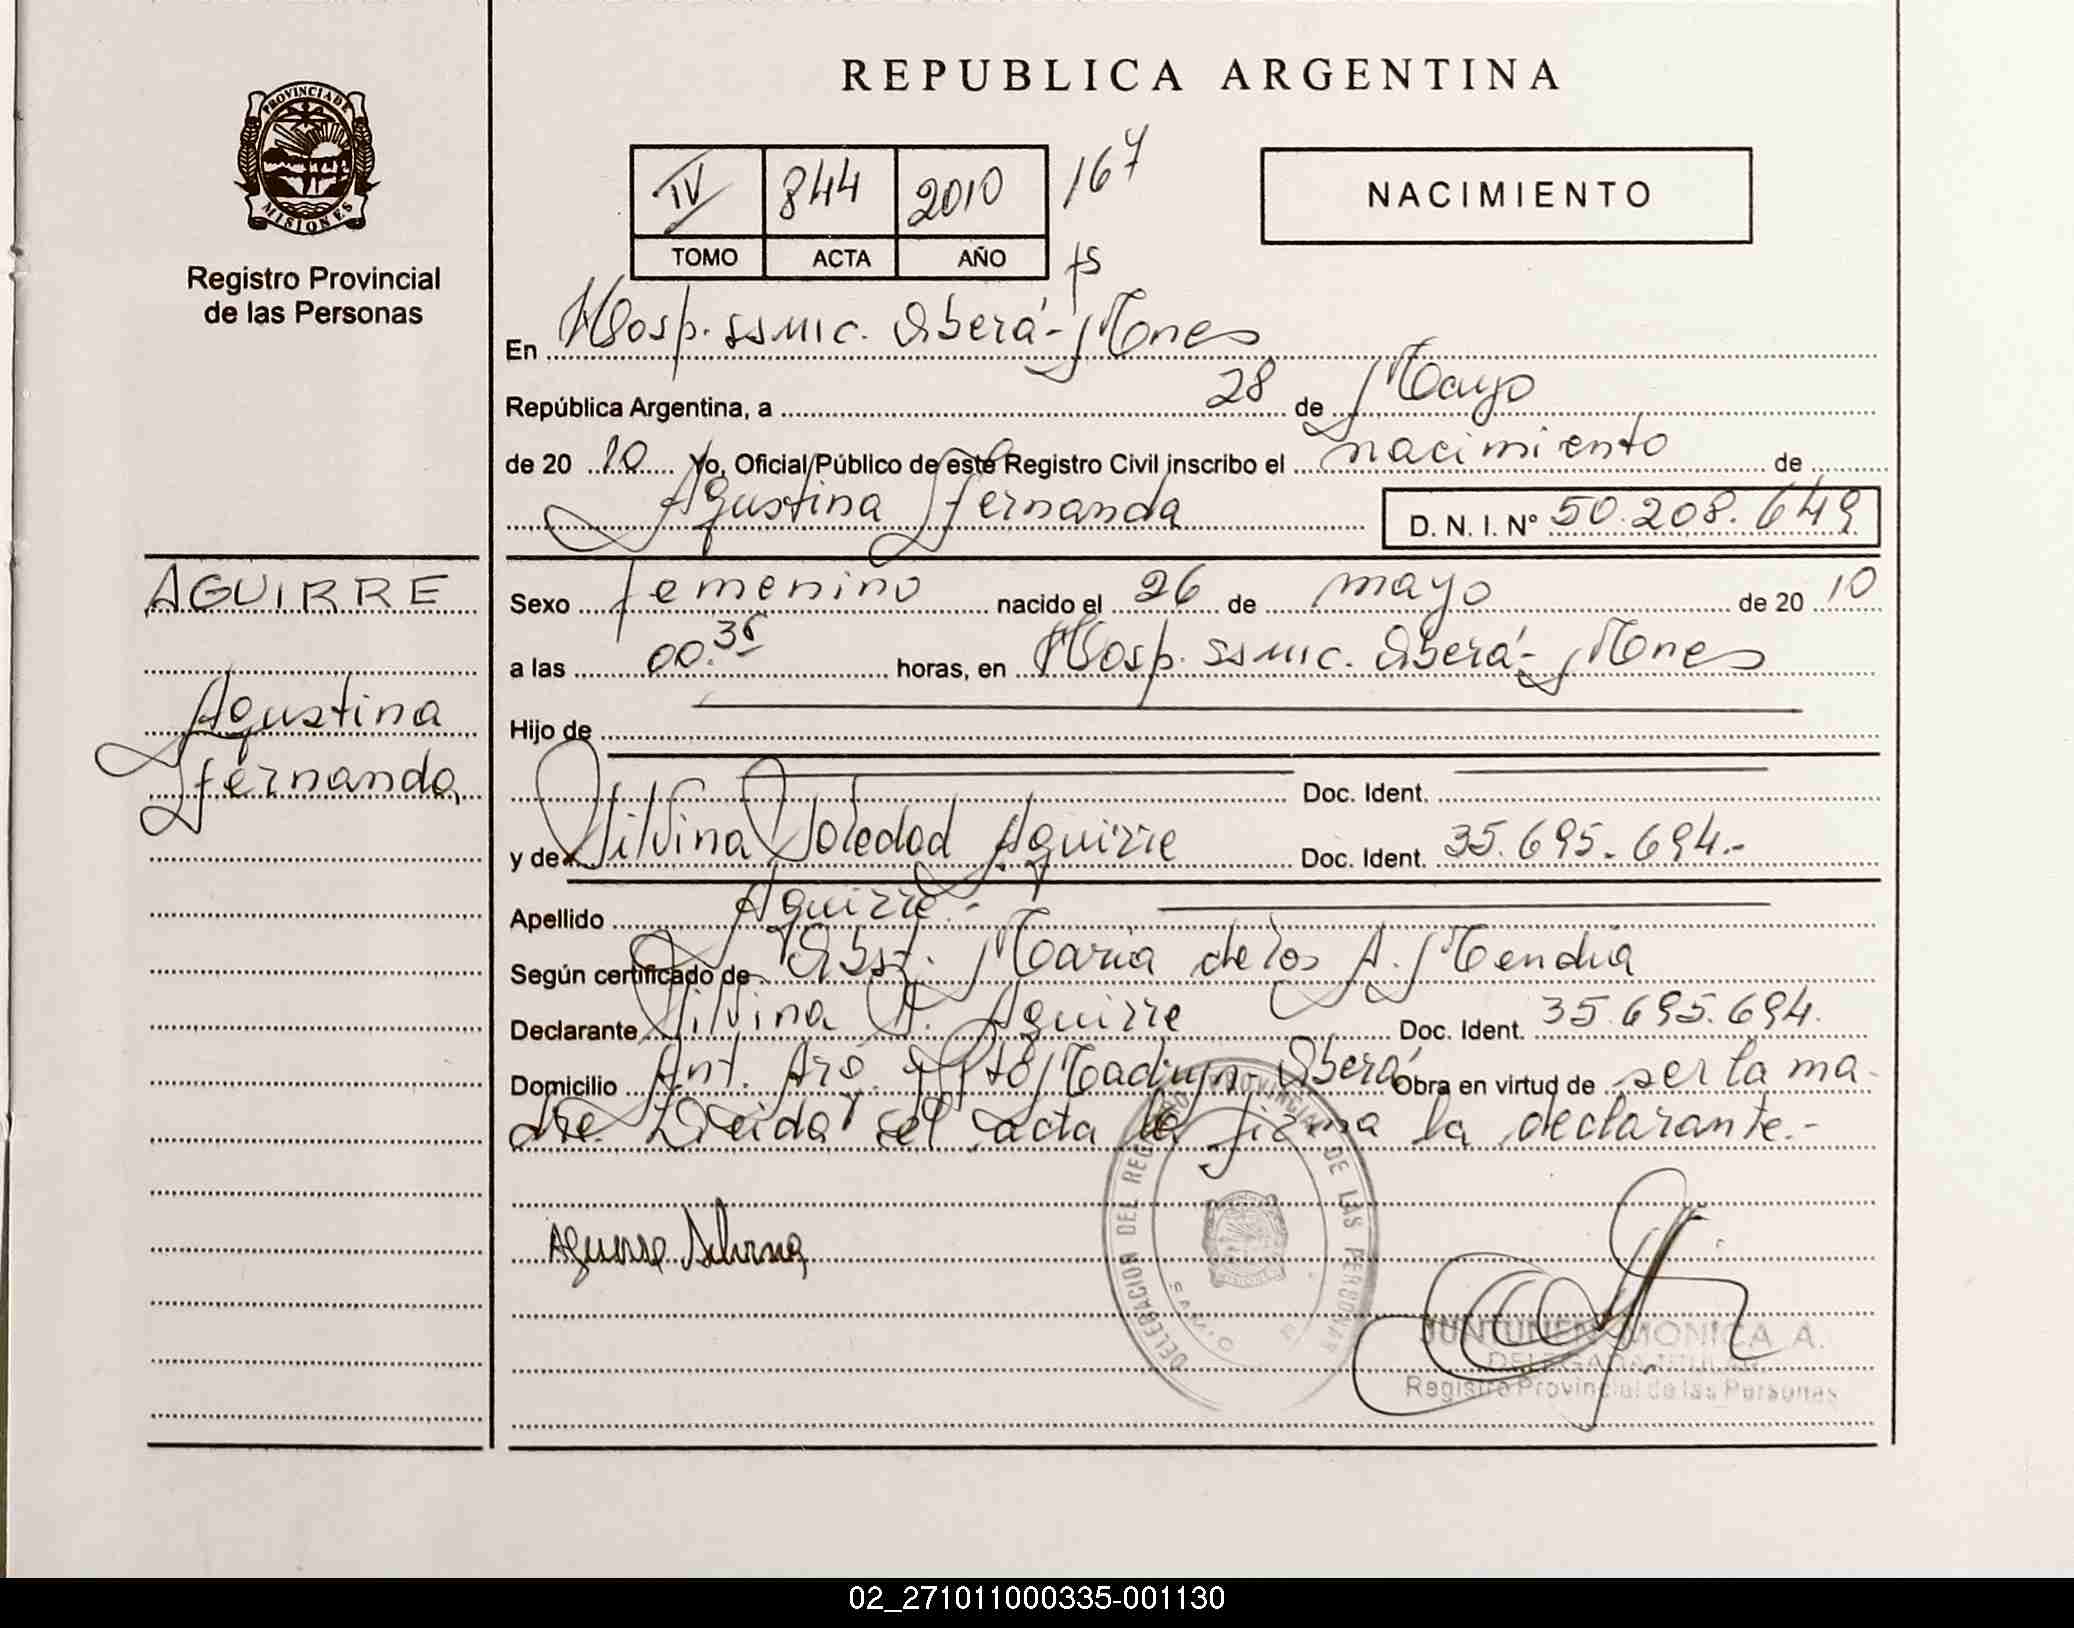 REPUBLICA ARGENTINA
PROVINCIA DE
MISIONES
Registro Provincial
de las Personas
IV 844 2010 167
TOMO ACTA AÑO fs
NACIMIENTO
En Hosp. SSMIC. Oberá - Mnes
República Argentina, a 28 de Mayo
de 20 10 Yo, Oficial Público de este Registro Civil inscribo el nacimiento de
Agustina Fernanda D. N. I. N° 50.208.649
AGUIRRE
Agustina
Fernanda
Sexo femenino nacido el 26 de mayo de 20 10
a las 00.35 horas, en Hosp. SSMIC. Oberá - Mnes
Hijo de
Doc. Ident.
y de Silvina Soledad Aguirre Doc. Ident. 35.695.694.-
Apellido Aguirre.-
Según certificado de Obst. Maria de los A. Mendia
Declarante Silvina S. Aguirre Doc. Ident. 35.695.694.
Domicilio Ant. Aró. Pto Madryn - Oberá Obra en virtud de ser la ma-
dre. Leida el acta la firma la declarante.-
Aguirre Silvina
DELEGACION DEL REGISTRO PROVINCIAL DE LAS PERSONAS
JUNTUNEN MONICA A.
DELEGADA TITULAR
Registro Provincial de las Personas
02_271011000335-001130